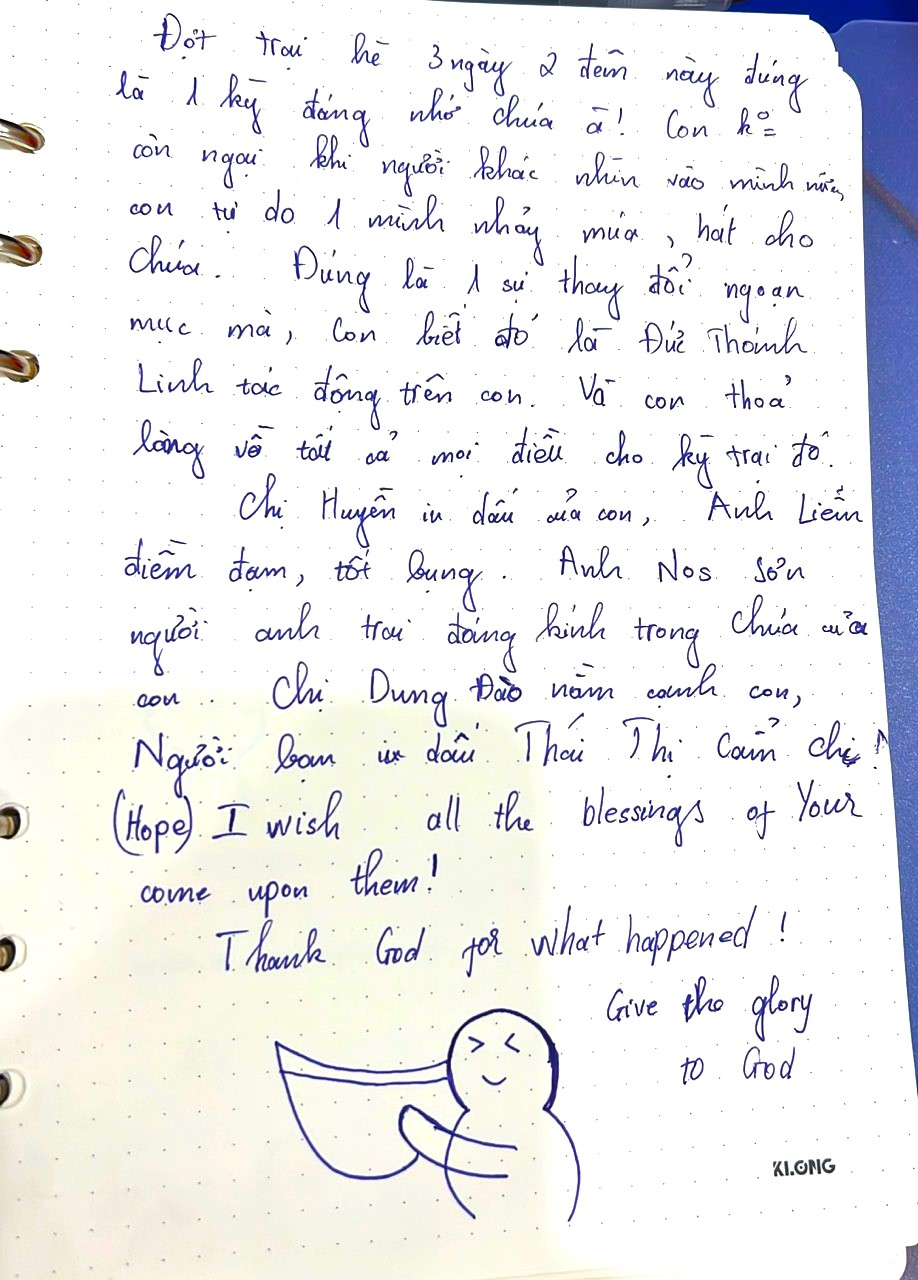 Đợt trại hè 3 ngày 2 đêm này đúng
là 1 kỳ đáng nhớ chúa ã! Con k°=
còn ngại khi người khác nhìn vào mình nữa,
con tự do 1 mình nhảy múa, hát cho
Chúa. Đúng là 1 sự thay đổi ngoạn
mục mà, con biết đó là Đức Thánh
Linh tác động trên con. Và con thoả
lòng về tất cả mọi điều cho kỳ trại đó.
Chị Huyền in dấu của con, Anh Liêm
điềm đạm, tốt bụng. Anh Nos Sơn
người anh trai đáng kính trong Chúa của
con. Chị Dung Đào nằm cạnh con,
Người bạn in dấu Thái Thị Cẩm Chi!
(Hope) I wish all the blessings of Your
come upon them!
Thank God for what happened!
Give the glory
to God
KLONG